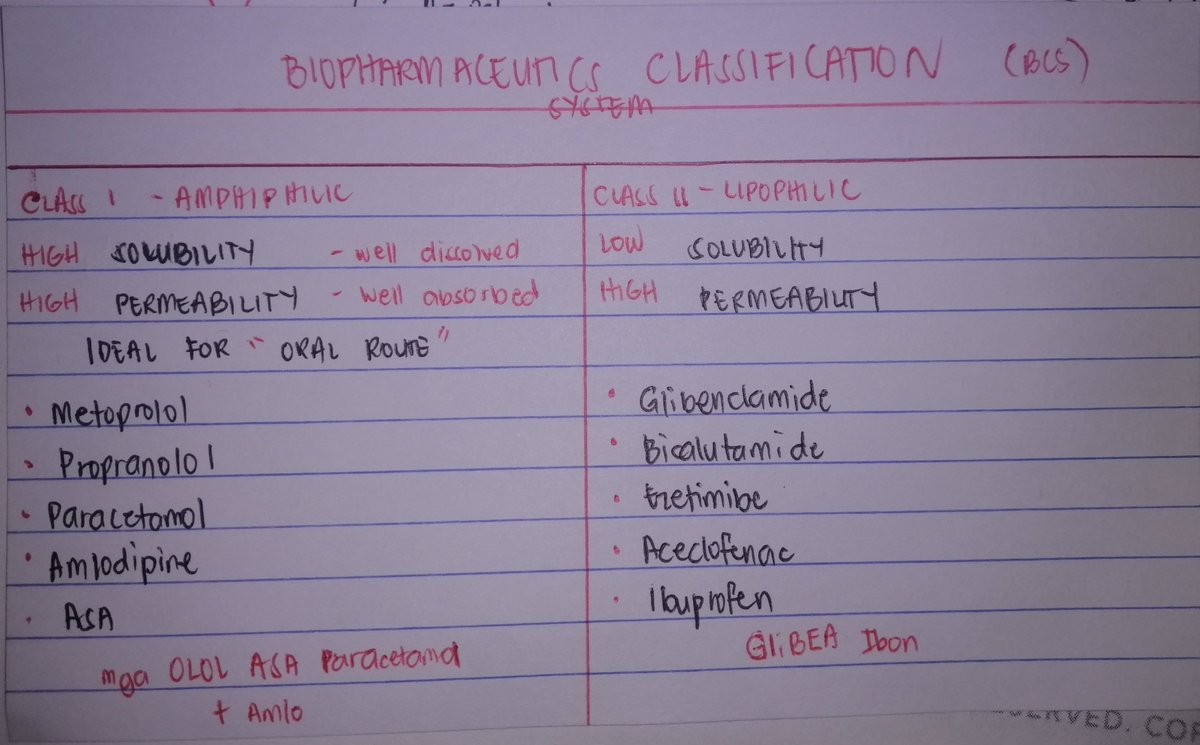 BIOPHARMACEUTICS CLASSIFICATION (BCS)
SYSTEM
CLASS I - AMPHIPHILIC
HIGH SOLUBILITY - well dissolved
HIGH PERMEABILITY - well absorbed
IDEAL FOR " ORAL ROUTE"
• Metoprolol
• Propranolol
• Paracetamol
• Amlodipine
• ASA
mga OLOL ASA Paracetamol
+ Amlo
CLASS II - LIPOPHILIC
LOW SOLUBILITY
HIGH PERMEABILITY
• Glibenclamide
• Bicalutamide
• Ezetimibe
• Aceclofenac
• Ibuprofen
GliBEA Ibon